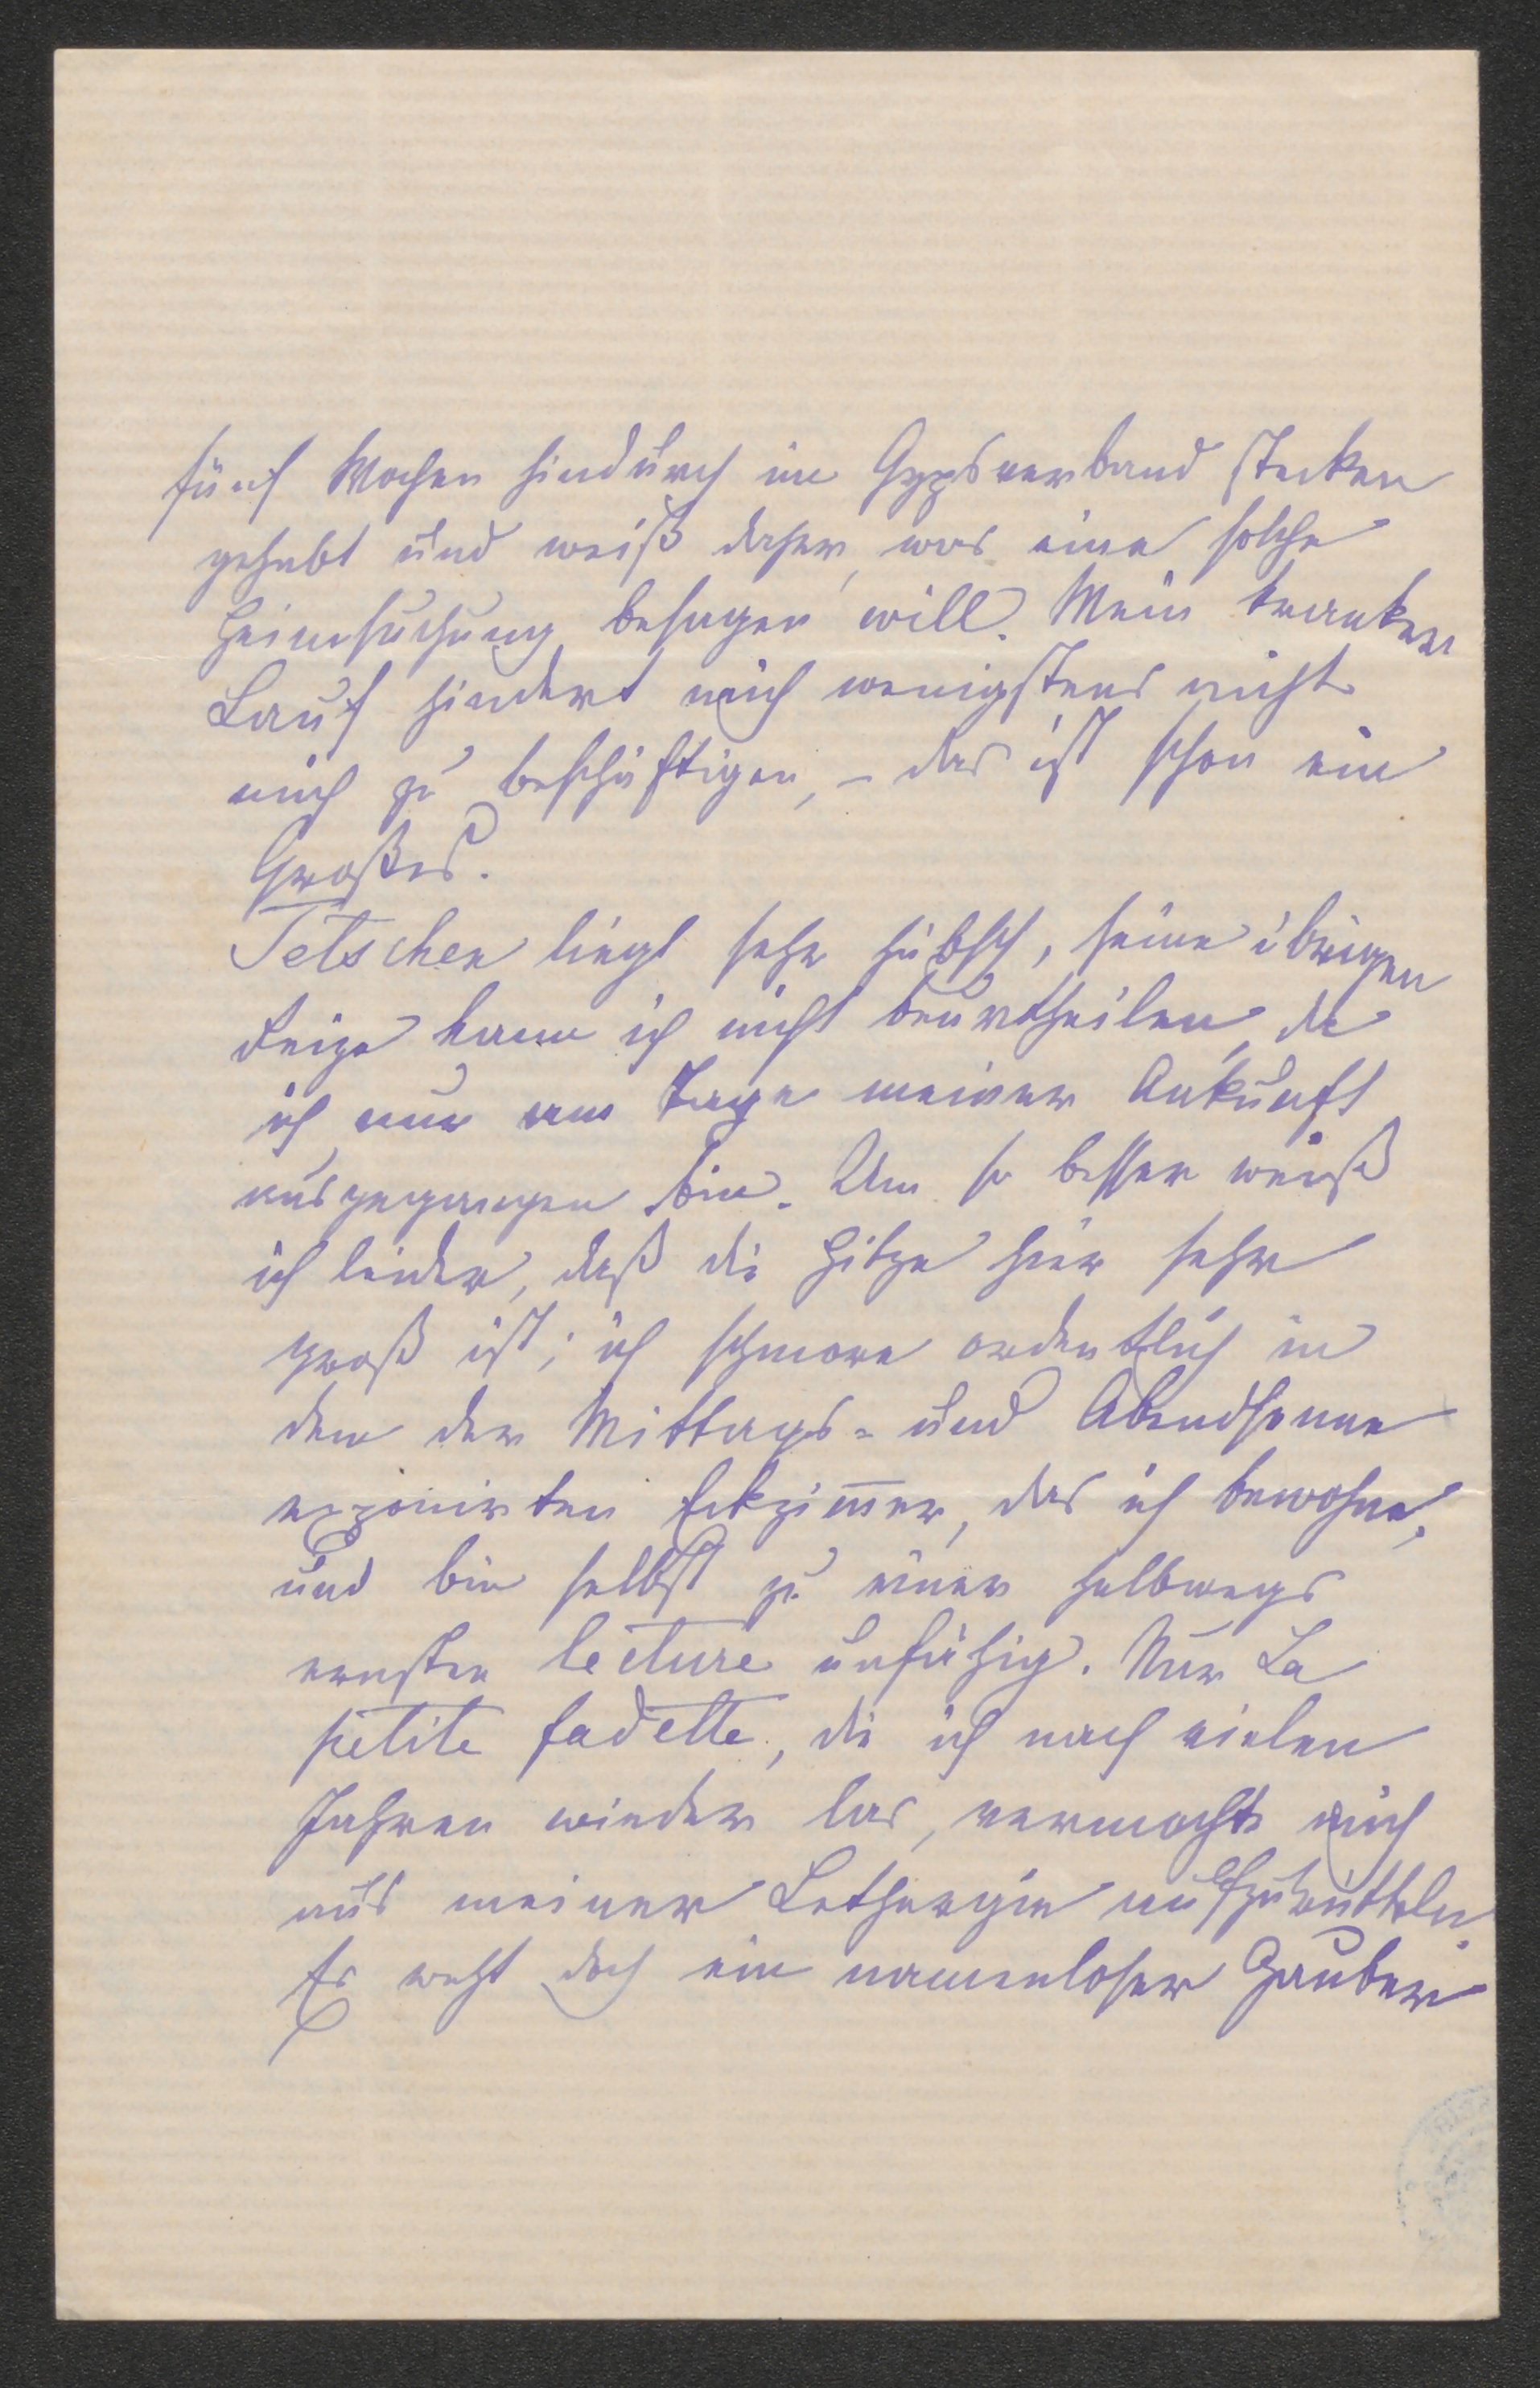 fünf Wochen hindurch im Gypsverband stecken
gehabt und weiß daher, was eine solche
Heimsuchung besagen will. Mein kranker
Lauf hindert mich wenigstens nicht
mich zu beschäftigen, – das ist schon ein
Großes.
Tetschen liegt sehr hübsch, seine übrigen
Reize kann ich nicht beurtheilen, da
ich nur am Tage meiner Ankunft
ausgegangen bin. Um so besser weiß
ich leider, daß die Hitze hier sehr
groß ist; ich schmore ordentlich in
dem der Mittags- und Abendsonne
exponirten Eckzimmer, das ich bewohne,
und bin selbst zu einer halbwegs
ernsten lecture unfähig. Nur La
petite fadette, die ich nach vielen
Jahren wieder las, vermochte mich
aus meiner Lethargie aufzurütteln.
Es weht doch ein namenloser Zauber